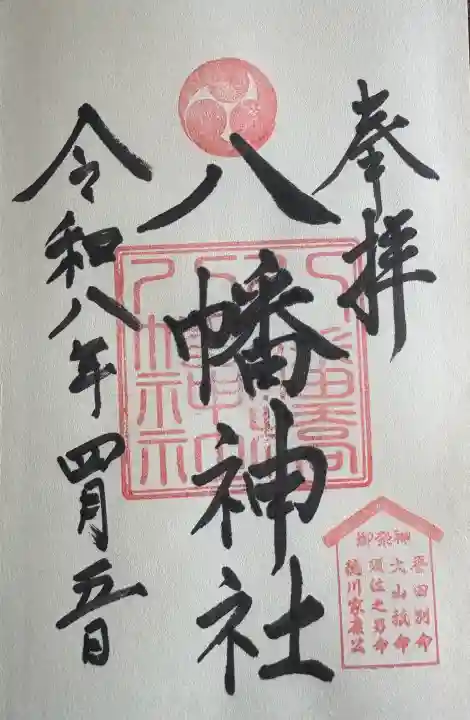 奉拝
八幡神社
令和八年四月五日
八幡橋
八幡神社
御祭神
誉田別命
大山祇命
須佐之男命
徳川家康公